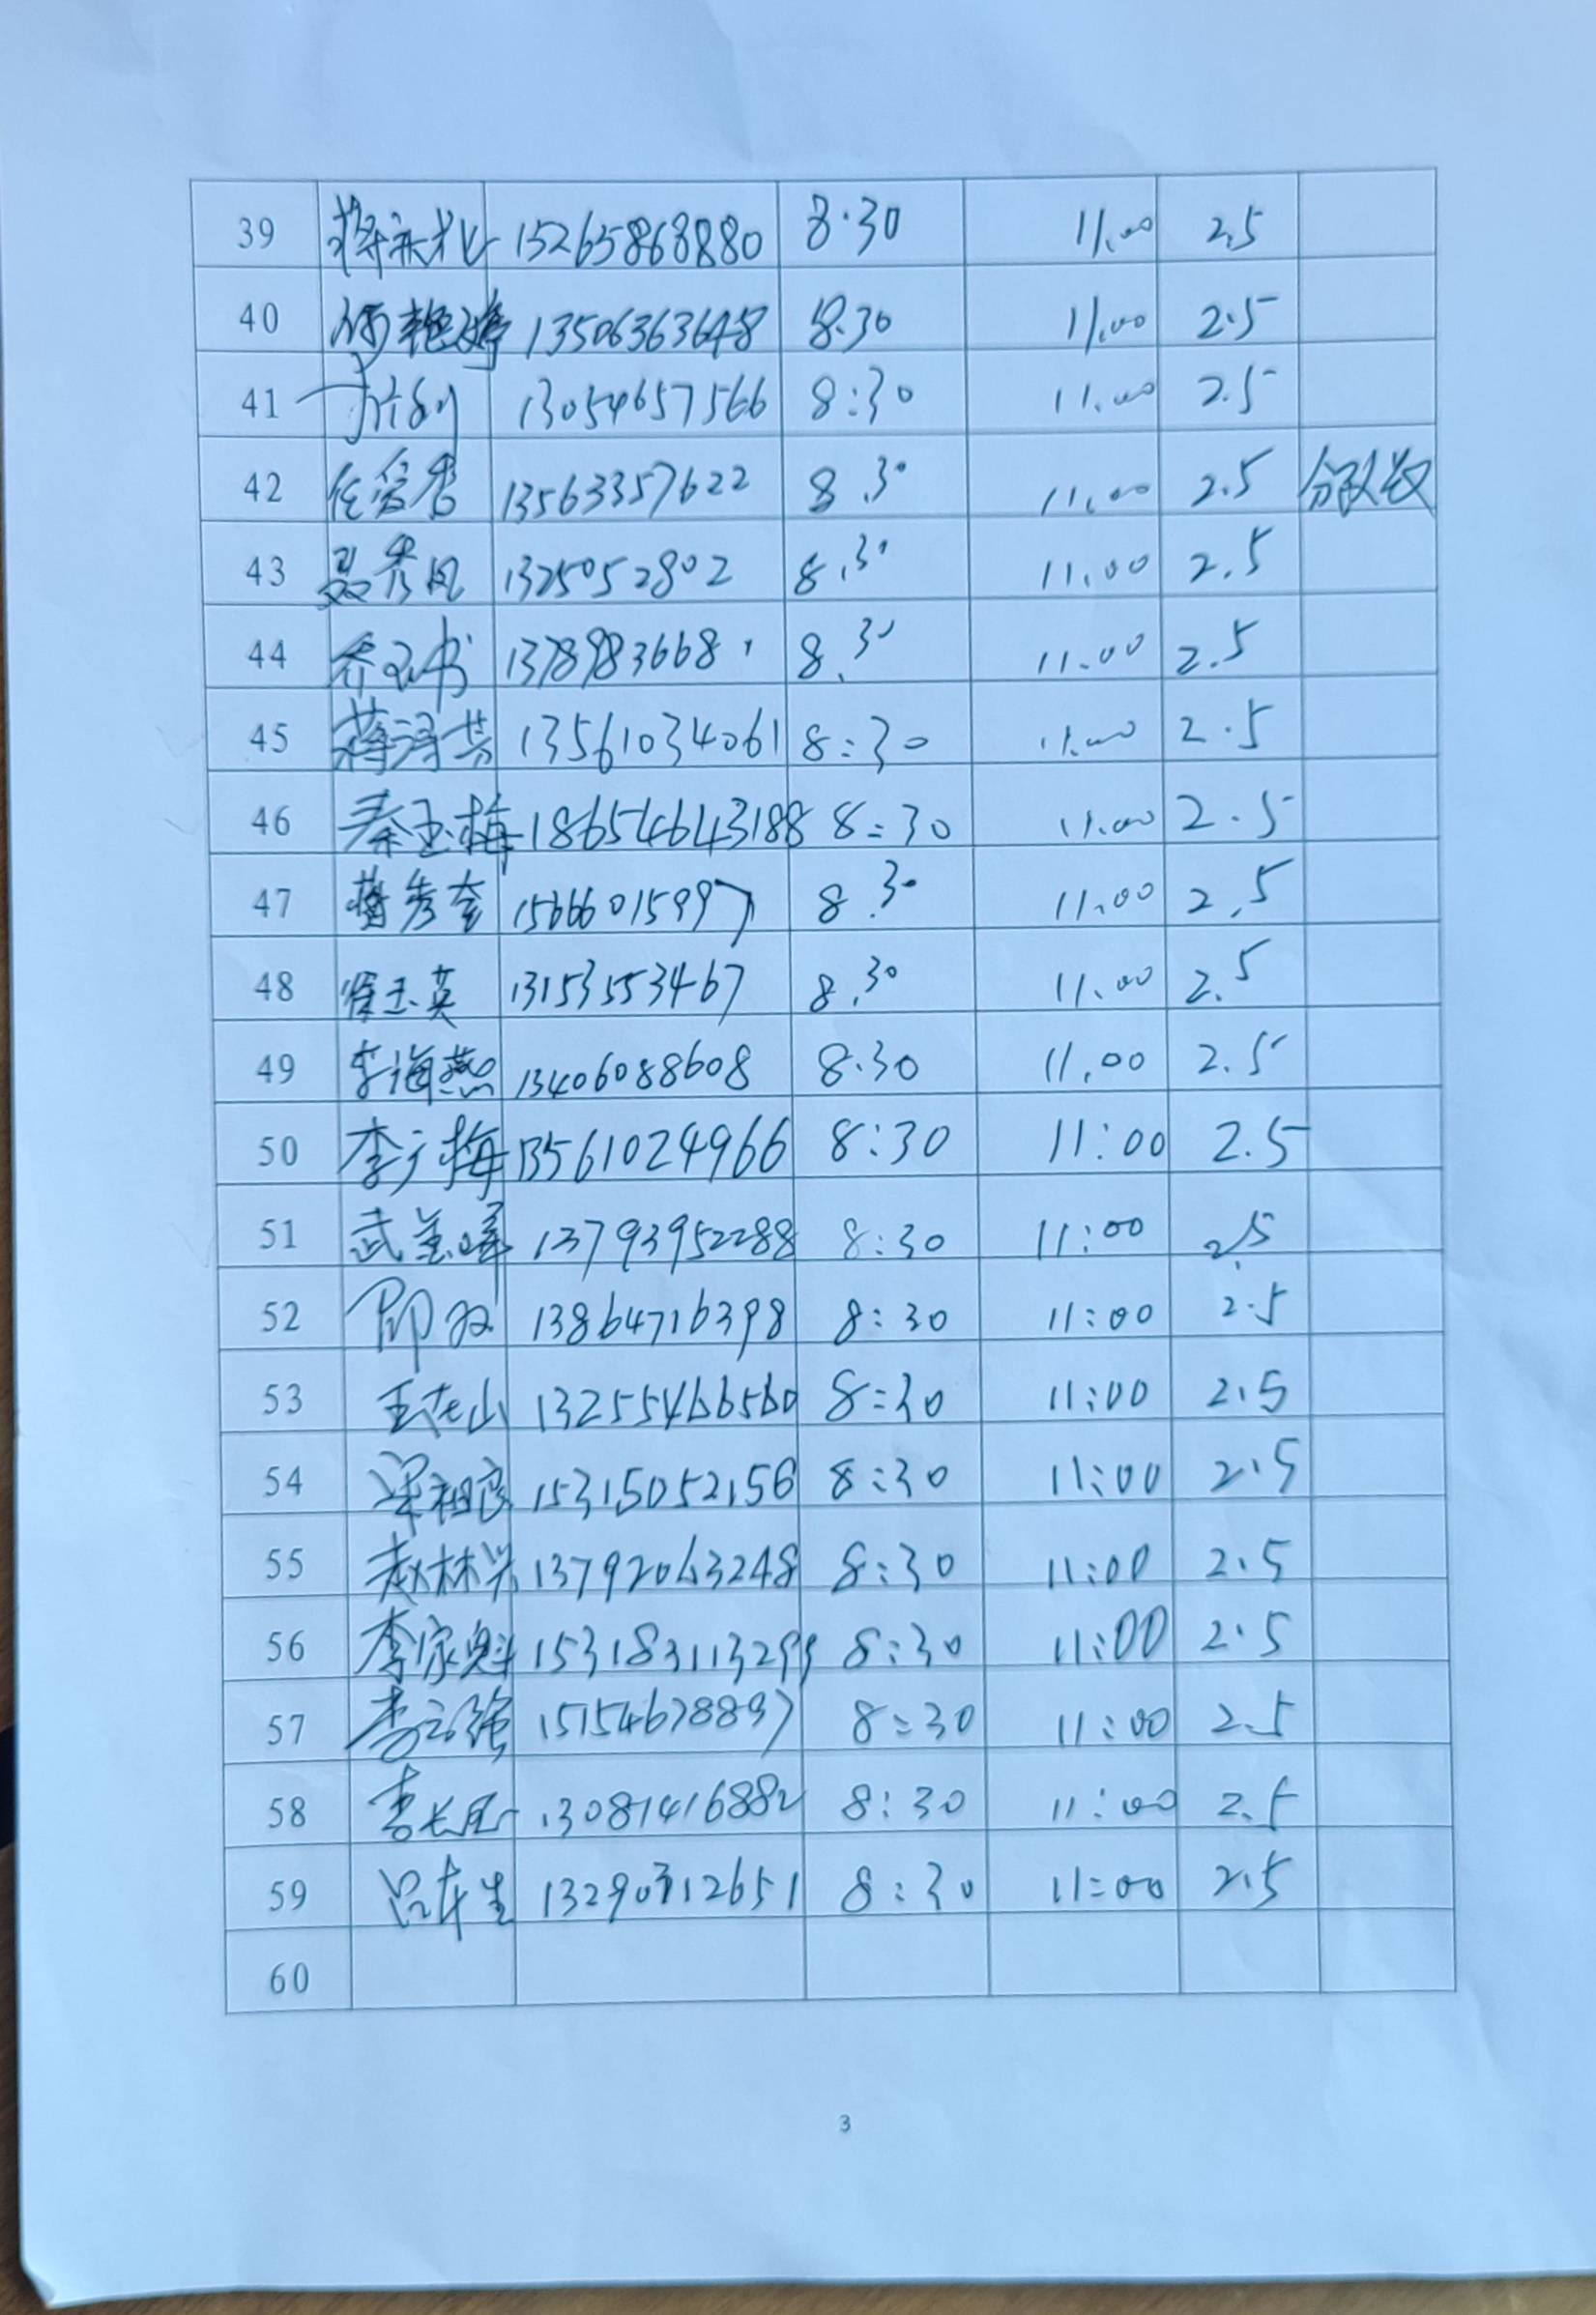 39 蒋永 15265868880 8.30 11.00 2.5
40 何艳婷 13506363648 8.30 11.00 2.5
41 13054657566 8:30 11.00 2.5
42 任爱香 13563357622 8.30 11.00 2.5
43 聂秀凤 1325052802 8.30 11.00 2.5
44 乔 1378983668 8.30 11.00 2.5
45 蒋 13561034061 8:30 11.00 2.5
46 秦玉梅 18654643188 8:30 11.00 2.5
47 蒋秀 15666015997 8.30 11.00 2.5
48 徐玉英 13153553467 8.30 11.00 2.5
49 李海燕 13406088608 8.30 11.00 2.5
50 李广梅 13561024966 8:30 11:00 2.5
51 武 13793952288 8:30 11:00 2.5
52 13864716398 8:30 11:00 2.5
53 王在山 13255466560 8:30 11:00 2.5
54 梁祖 15315052156 8:30 11:00 2.5
55 赵林兴 13792063248 8:30 11:00 2.5
56 李家魁 153183113299 8:30 11:00 2.5
57 李强 15154678897 8:30 11:00 2.5
58 李长 13081416882 8:30 11:00 2.5
59 吕车生 13290312651 8:30 11:00 2.5
60
3